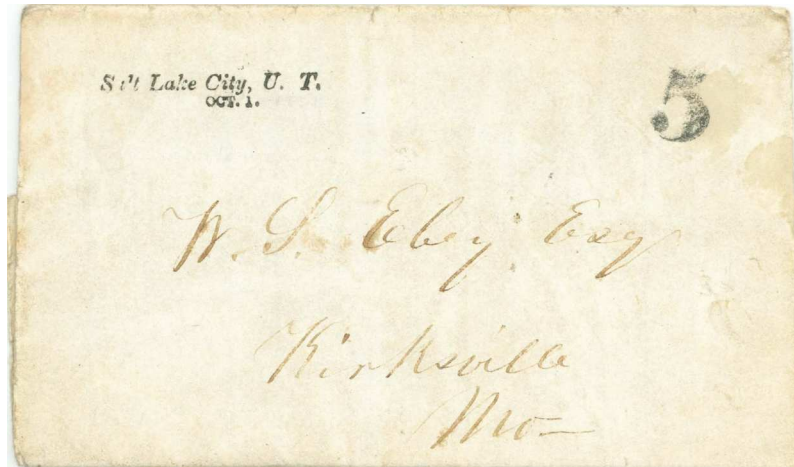 Salt Lake City, U. T.
OCT. 1.
5
W. S. Eby Esq
Kirksville
Mo